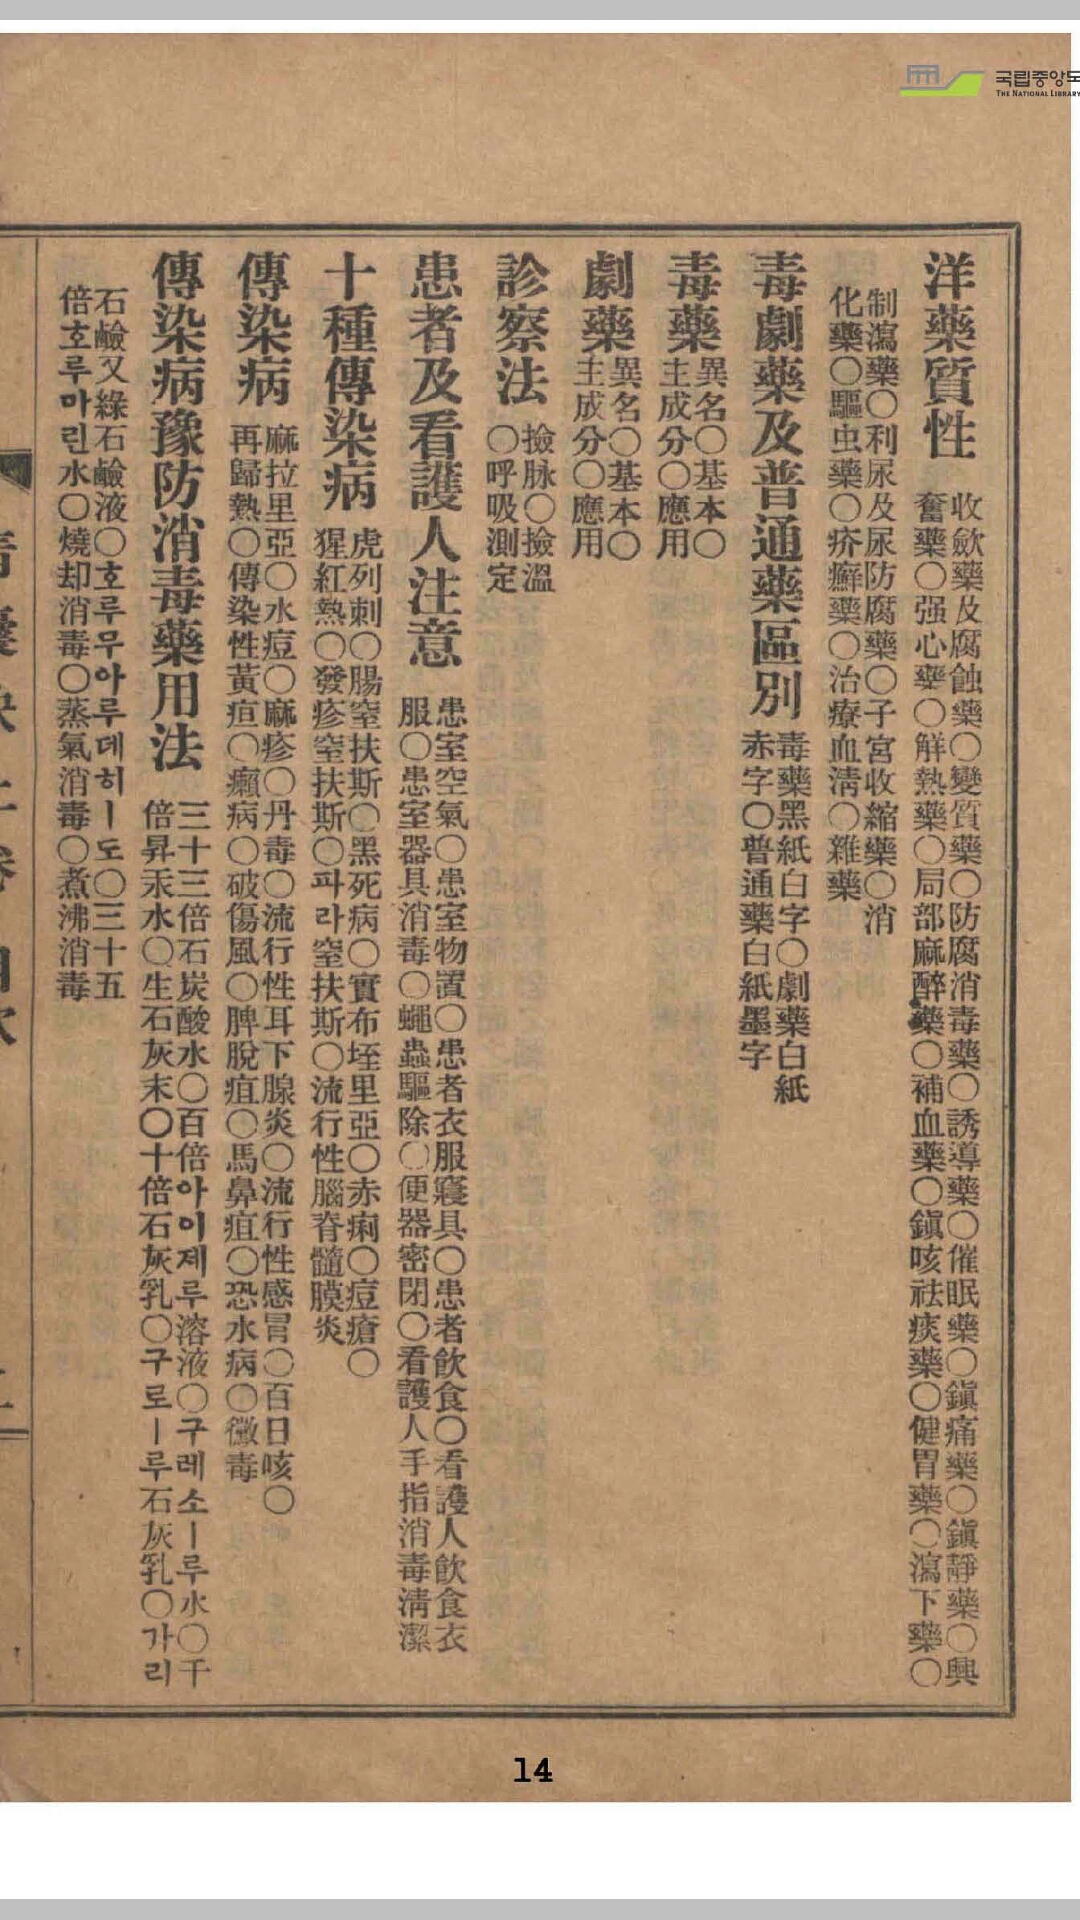 국립중앙도
THE NATIONAL LIBRARY
洋藥質性
收歛藥及腐蝕藥〇變質藥〇防腐消毒藥〇誘導藥〇催眠藥〇鎭痛藥〇鎭靜藥〇興
奮藥〇强心藥〇解熱藥〇局部麻醉藥〇補血藥〇鎭咳祛痰藥〇健胃藥〇瀉下藥〇
制瀉藥〇利尿及尿防腐藥〇子宮收縮藥〇消
化藥〇驅虫藥〇疥癬藥〇治療血淸〇雜藥
毒劇藥及普通藥區別
毒藥黑紙白字〇劇藥白紙
赤字〇普通藥白紙墨字
毒藥
異名〇基本〇
主成分〇應用
劇藥
異名〇基本〇
主成分〇應用
診察法
撿脉〇撿溫
〇呼吸測定
患者及看護人注意
患室空氣〇患室物置〇患者衣服寢具〇患者飮食〇看護人飮食衣
服〇患室器具消毒〇蠅蟲驅除〇便器密閉〇看護人手指消毒淸潔
十種傳染病
虎列刺〇膓窒扶斯〇黑死病〇實布垤里亞〇赤痢〇痘瘡〇
猩紅熱〇發疹窒扶斯〇파라窒扶斯〇流行性腦脊髓膜炎
傳染病
麻拉里亞〇水痘〇麻疹〇丹毒〇流行性耳下腺炎〇流行性感冒〇百日咳〇
再歸熱〇傳染性黃疸〇癩病〇破傷風〇脾脫疽〇馬鼻疽〇恐水病〇黴毒
傳染病豫防消毒藥用法
三十三倍石炭酸水〇百倍아이제루溶液〇구레소ー루水〇千
倍昇汞水〇生石灰末〇十倍石灰乳〇구로ー루石灰乳〇가리
石鹼又綠石鹼液〇호루무아루데히ー도〇三十五
倍호루마린水〇燒却消毒〇蒸氣消毒〇煮沸消毒
14